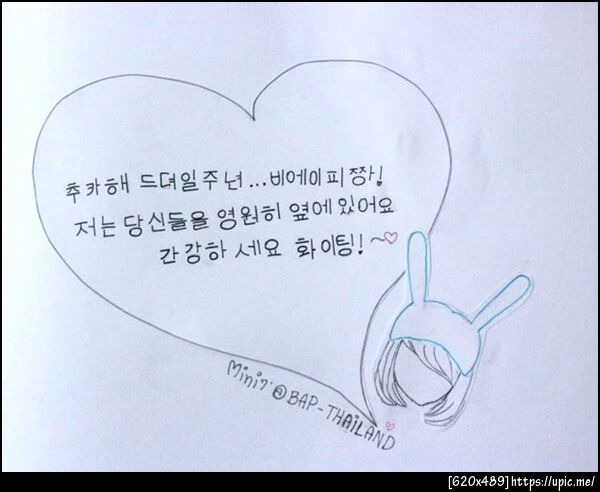 추카해 드뎌일주년...비에이피짱!
저는 당신들을 영원히 옆에 있어요
간강하세요 화이팅!~♡
Mini7@BAP-THAILAND
[620x489]https://upic.me/